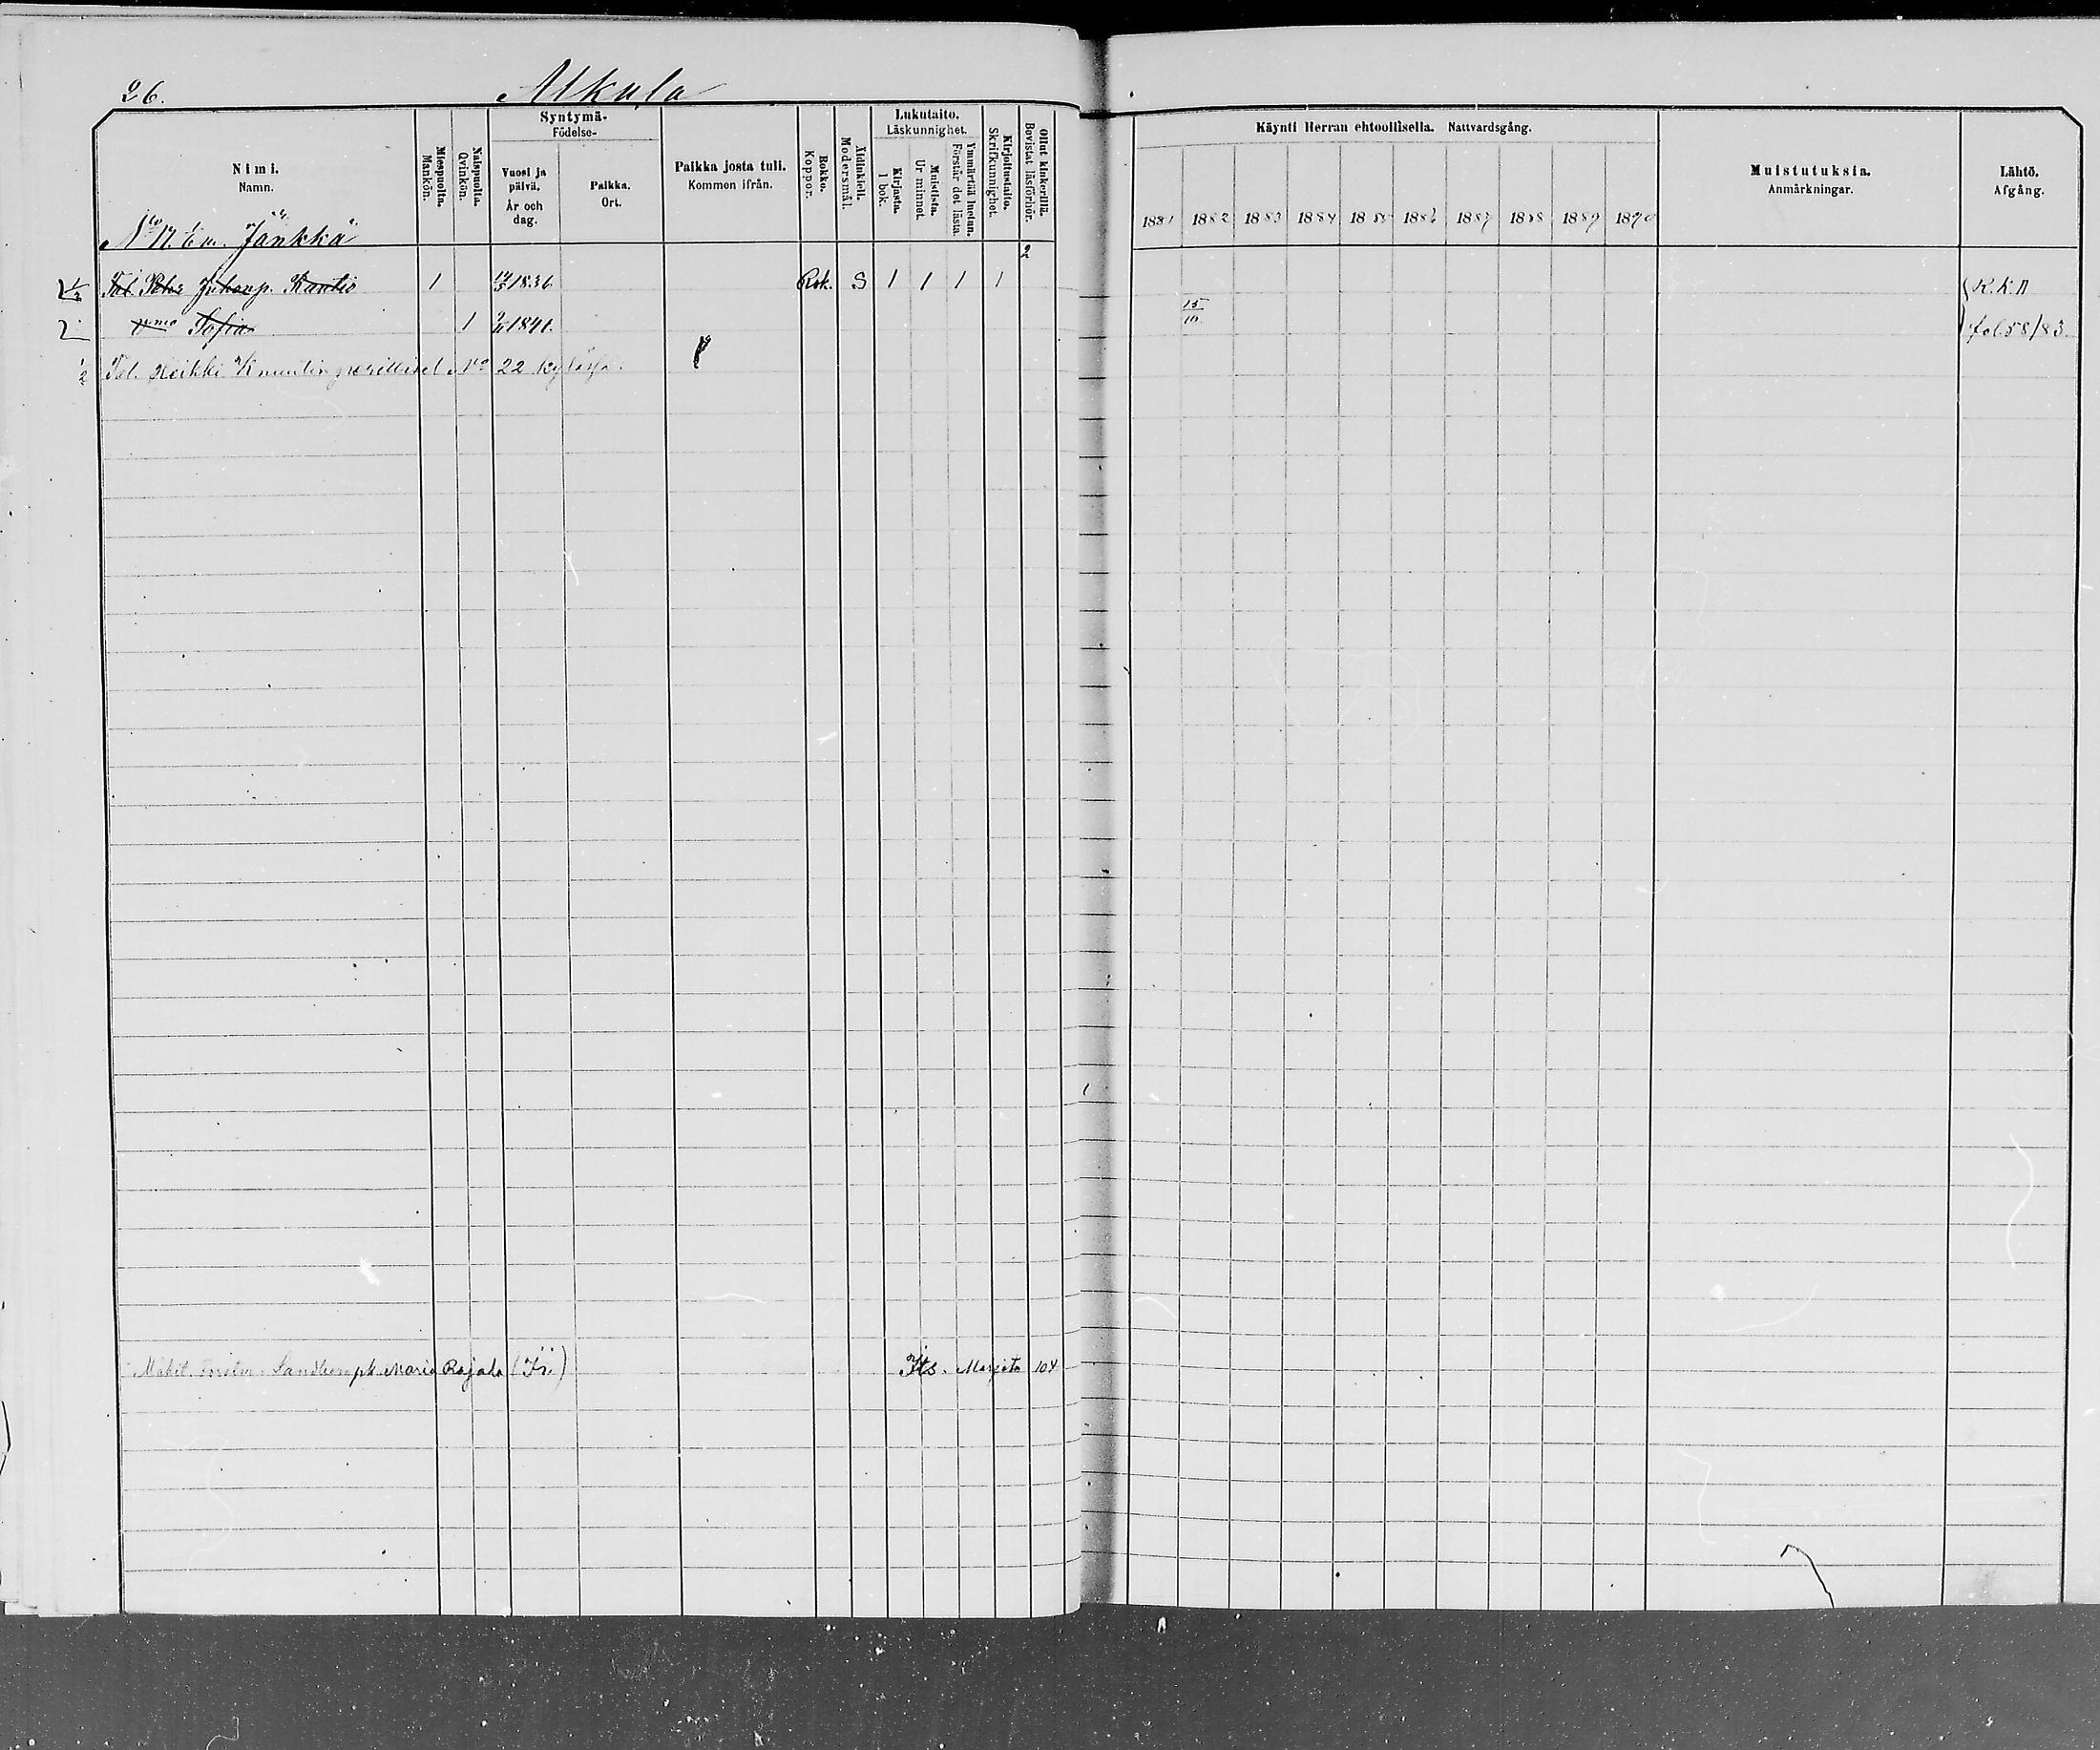 26.
Alkula
Nimi.
Namn.
Miespuolia.
Mankön.
Naispuolia.
Qvinkön.
Syntymä-
Födelse-
Vuosi ja
päivä.
År och
dag.
Paikka.
Ort.
Paikka josta tuli.
Kommen ifrån.
Rokko.
Koppor.
Äidinkieli.
Modersmål.
Lukutaito.
Läskunnighet.
Kirjasta.
I bok.
Muistista.
Ur minnet
Ymmärtää luetun.
Förstår det lästa.
Kirjoitustaito.
Skrifkunnighet.
Ollut kinkerillä.
Bevistat läsförhör.
Käynti Herran ehtoollisella. Nattvardsgång.
1881 1882 1883 1884 1885 1886 1887 1888 1889 1890
Muistutuksia.
Anmärkningar.
Lähtö.
Afgång.
N:o 17. Jänkkä
2
Tal. Juhonp. Rautio 1 1836 Rok. S 1 1 1 1 K.K.
Sofia 1 1841. 15/10 fol 58/83.
1/2 Tal. Heikki Knuutin N:o 22
Maria Rajala (Ii) Its. Marjeta 104